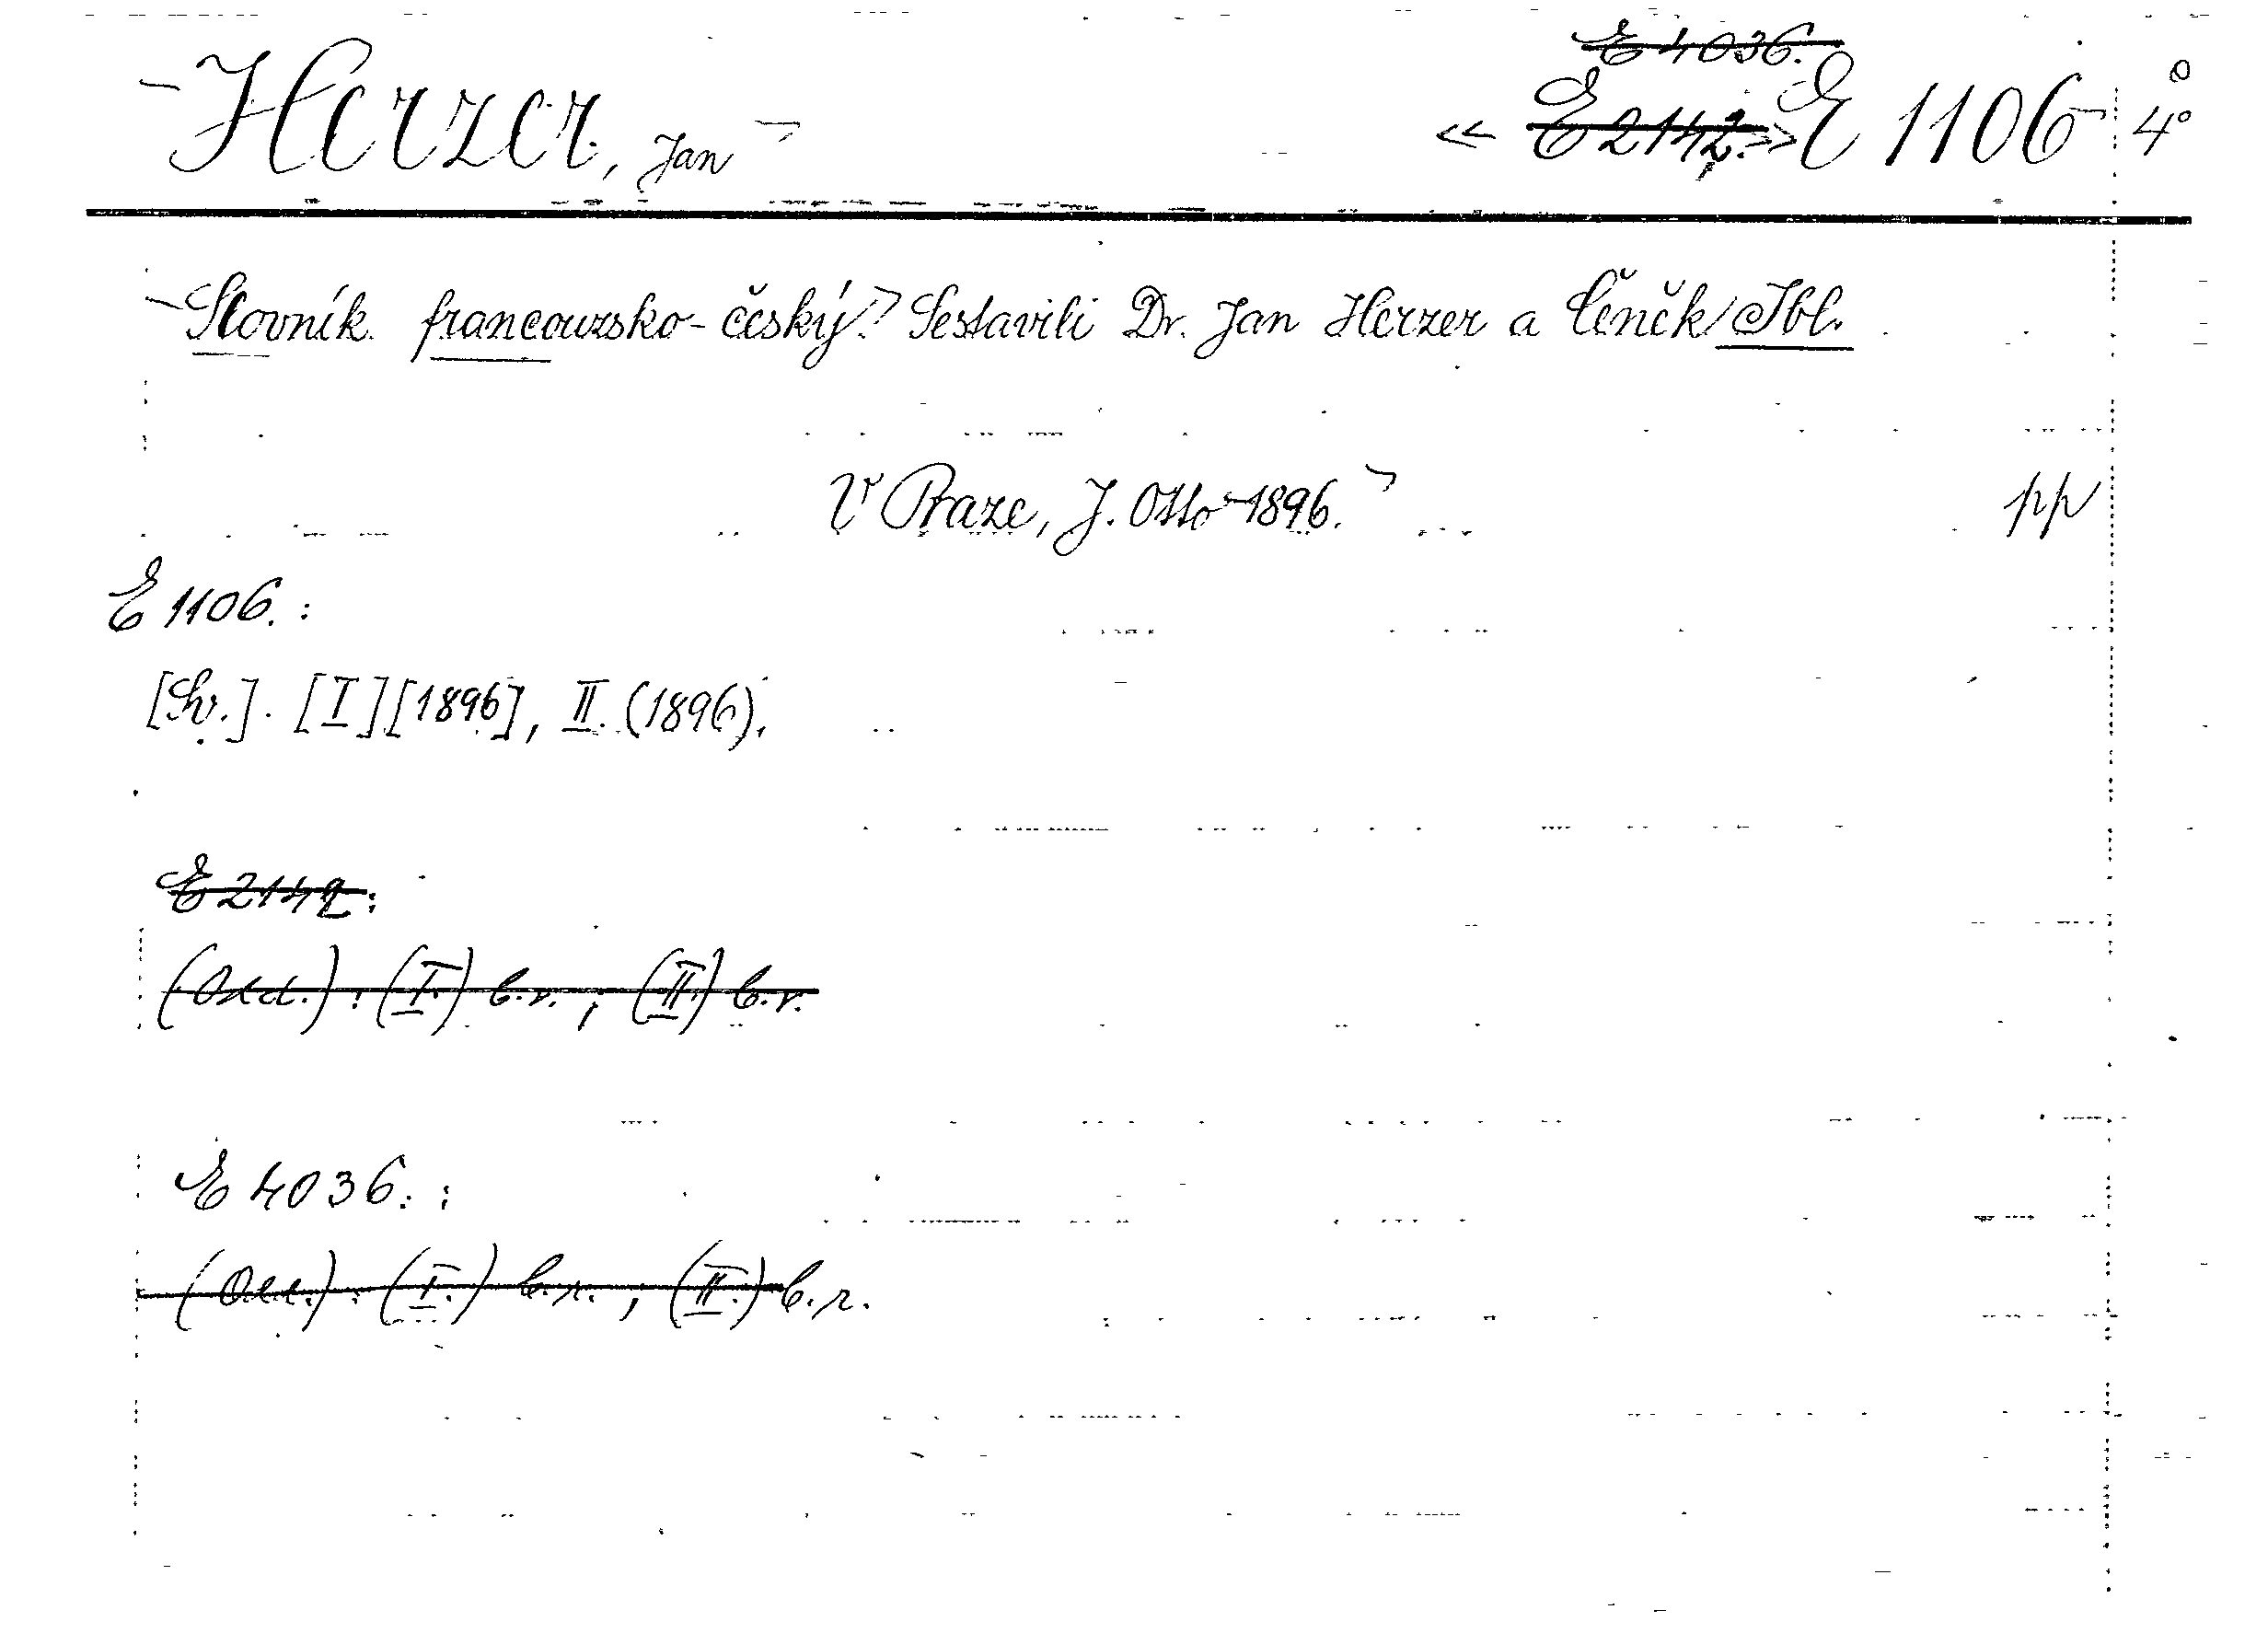 E 4036.
Herzer, Jan « E 2142. » E 1106 4°
Slovník francouzsko-český. Sestavili Dr. Jan Herzer a Čeněk Ibl.
V Praze, J. Otto 1896. pp
E 1106. :
[Sv.]. [I] [1896], II. (1896).
E 2142 :
(Odd.) : (I.) b.r. ; (II.) b.r.
E 4036. :
(Odd.) : (I.) b.r. ; (II.) b.r.